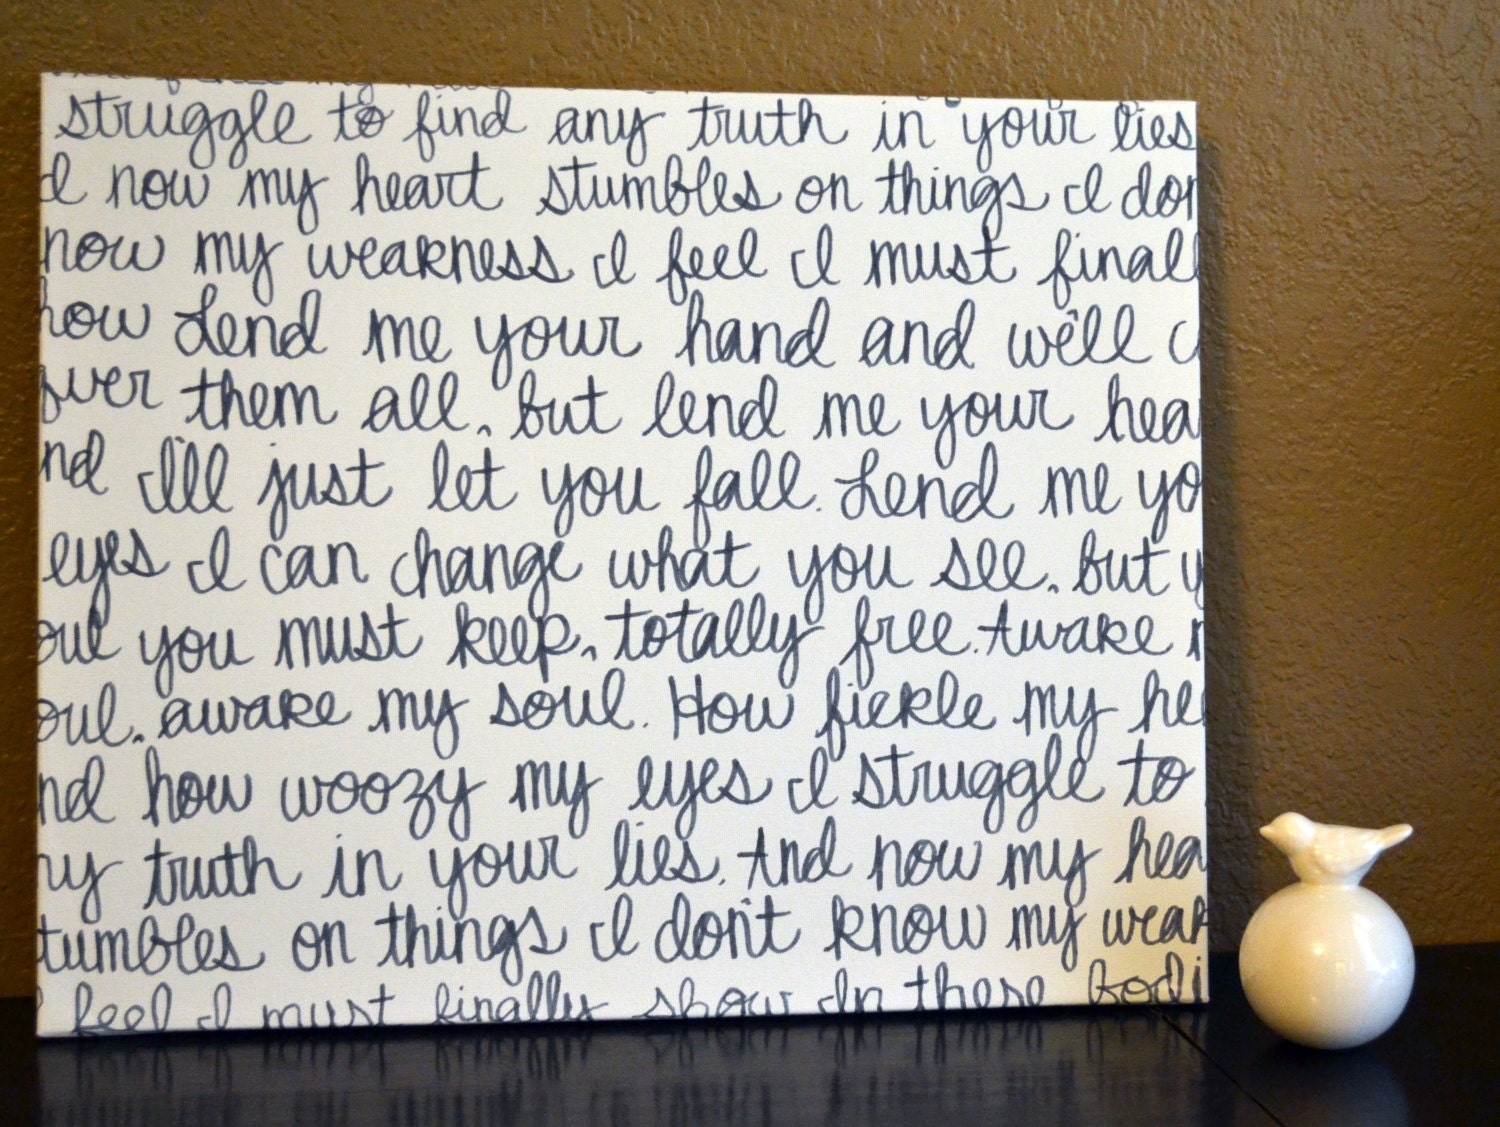 struggle to find any truth in your lies
d now my heart stumbles on things I don
now my weakness I feel I must finall
how Lend me your hand and we'll c
over them all, but lend me your hea
nd I'll just let you fall. Lend me yo
eyes I can change what you see, but y
oul you must keep, totally free. Awake m
oul, awake my soul. How fickle my he
nd how woozy my eyes I struggle to
ny truth in your lies. And now my hea
tumbles on things I don't know my weak
feel I must finally show In these bodi